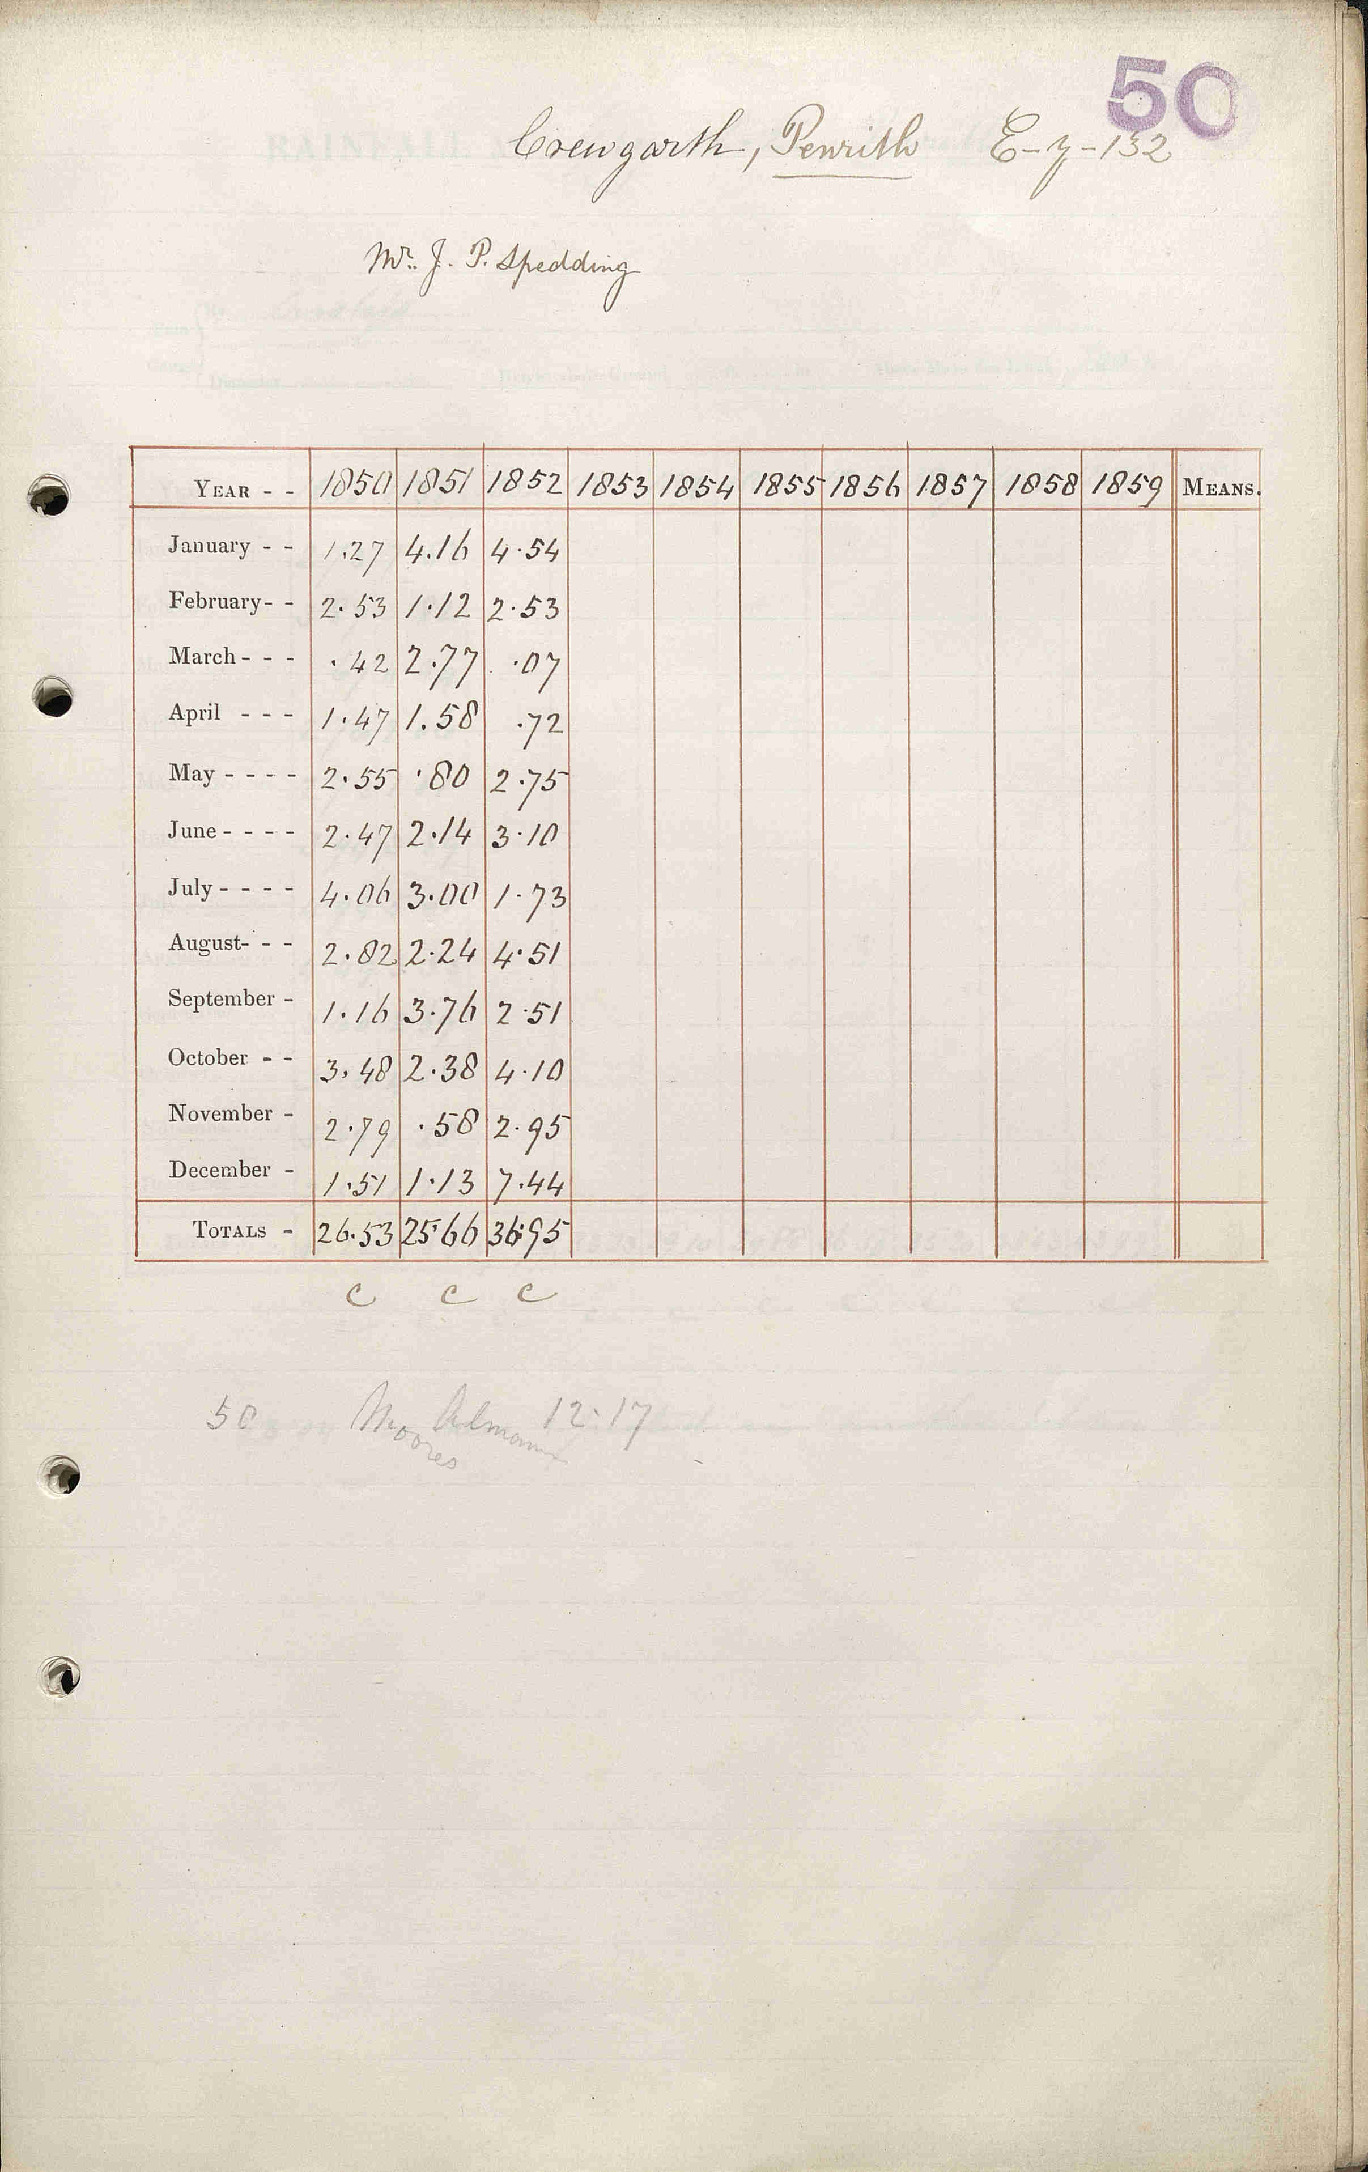 50
Crewgarth, Penrith E-y-132
Mr. J. P. Spedding
YEAR - - 1850 1851 1852 1853 1854 1855 1856 1857 1858 1859 MEANS.
January - - 1.27 4.16 4.54
February - - 2.53 1.12 2.53
March - - - .42 2.77 .07
April - - - 1.47 1.58 .72
May - - - - 2.55 .80 2.75
June - - - - 2.47 2.14 3.10
July - - - - 4.06 3.00 1.73
August - - - 2.82 2.24 4.51
September - 1.16 3.76 2.51
October - - 3.48 2.38 4.10
November - 2.79 .58 2.95
December - 1.51 1.13 7.44
TOTALS - 26.53 25.66 36.95
C C C
50 Moores Almanx 12.17